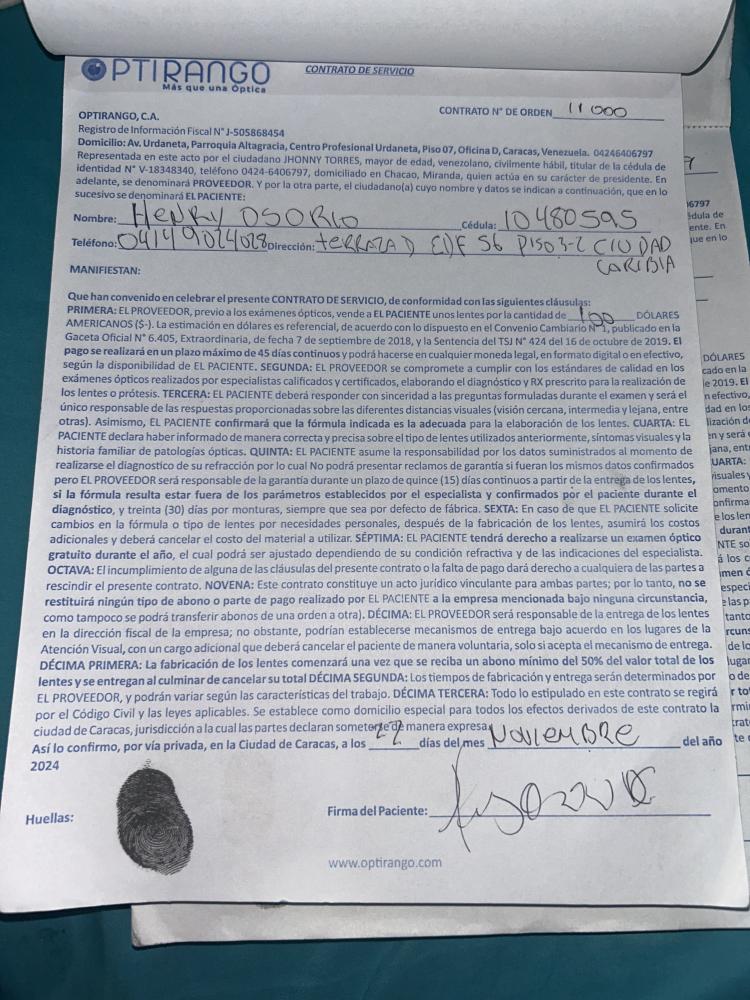 OPTIRANGO
Más que una Óptica
CONTRATO DE SERVICIO
CONTRATO N° DE ORDEN 11000
OPTIRANGO, C.A.
Registro de Información Fiscal N° J-505868454
Domicilio: Av. Urdaneta, Parroquia Altagracia, Centro Profesional Urdaneta, Piso 07, Oficina D, Caracas, Venezuela. 04246406797
Representada en este acto por el ciudadano JHONNY TORRES, mayor de edad, venezolano, civilmente hábil, titular de la cédula de
identidad N° V-18348340, teléfono 0424-6406797, domiciliado en Chacao, Miranda, quien actúa en su carácter de presidente. En
adelante, se denominará PROVEEDOR. Y por la otra parte, el ciudadano(a) cuyo nombre y datos se indican a continuación, que en lo
sucesivo se denominará EL PACIENTE:
Nombre: HENRY OSORIO Cédula: 10480595
Teléfono: 04149024028 Dirección: TERRAZA D EDF 56 PISO 3-2 CIUDAD
CARIBIA
MANIFIESTAN:
Que han convenido en celebrar el presente CONTRATO DE SERVICIO, de conformidad con las siguientes cláusulas:
PRIMERA: EL PROVEEDOR, previo a los exámenes ópticos, vende a EL PACIENTE unos lentes por la cantidad de 100 DÓLARES
AMERICANOS ($-). La estimación en dólares es referencial, de acuerdo con lo dispuesto en el Convenio Cambiario N°1, publicado en la
Gaceta Oficial N° 6.405, Extraordinaria, de fecha 7 de septiembre de 2018, y la Sentencia del TSJ N° 424 del 16 de octubre de 2019. El
pago se realizará en un plazo máximo de 45 días continuos y podrá hacerse en cualquier moneda legal, en formato digital o en efectivo,
según la disponibilidad de EL PACIENTE. SEGUNDA: EL PROVEEDOR se compromete a cumplir con los estándares de calidad en los
exámenes ópticos realizados por especialistas calificados y certificados, elaborando el diagnóstico y RX prescrito para la realización de
los lentes o prótesis. TERCERA: EL PACIENTE deberá responder con sinceridad a las preguntas formuladas durante el examen y será el
único responsable de las respuestas proporcionadas sobre las diferentes distancias visuales (visión cercana, intermedia y lejana, entre
otras). Asimismo, EL PACIENTE confirmará que la fórmula indicada es la adecuada para la elaboración de los lentes. CUARTA: EL
PACIENTE declara haber informado de manera correcta y precisa sobre el tipo de lentes utilizados anteriormente, síntomas visuales y la
historia familiar de patologías ópticas. QUINTA: EL PACIENTE asume la responsabilidad por los datos suministrados al momento de
realizarse el diagnostico de su refracción por lo cual No podrá presentar reclamos de garantía si fueran los mismos datos confirmados
pero EL PROVEEDOR será responsable de la garantía durante un plazo de quince (15) días continuos a partir de la entrega de los lentes,
si la fórmula resulta estar fuera de los parámetros establecidos por el especialista y confirmados por el paciente durante el
diagnóstico, y treinta (30) días por monturas, siempre que sea por defecto de fábrica. SEXTA: En caso de que EL PACIENTE solicite
cambios en la fórmula o tipo de lentes por necesidades personales, después de la fabricación de los lentes, asumirá los costos
adicionales y deberá cancelar el costo del material a utilizar. SÉPTIMA: EL PACIENTE tendrá derecho a realizarse un examen óptico
gratuito durante el año, el cual podrá ser ajustado dependiendo de su condición refractiva y de las indicaciones del especialista.
OCTAVA: El incumplimiento de alguna de las cláusulas del presente contrato o la falta de pago dará derecho a cualquiera de las partes a
rescindir el presente contrato. NOVENA: Este contrato constituye un acto jurídico vinculante para ambas partes; por lo tanto, no se
restituirá ningún tipo de abono o parte de pago realizado por EL PACIENTE a la empresa mencionada bajo ninguna circunstancia,
como tampoco se podrá transferir abonos de una orden a otra). DÉCIMA: EL PROVEEDOR será responsable de la entrega de los lentes
en la dirección fiscal de la empresa; no obstante, podrían establecerse mecanismos de entrega bajo acuerdo en los lugares de la
Atención Visual, con un cargo adicional que deberá cancelar el paciente de manera voluntaria, solo si acepta el mecanismo de entrega.
DÉCIMA PRIMERA: La fabricación de los lentes comenzará una vez que se reciba un abono mínimo del 50% del valor total de los
lentes y se entregan al culminar de cancelar su total DÉCIMA SEGUNDA: Los tiempos de fabricación y entrega serán determinados por
EL PROVEEDOR, y podrán variar según las características del trabajo. DÉCIMA TERCERA: Todo lo estipulado en este contrato se regirá
por el Código Civil y las leyes aplicables. Se establece como domicilio especial para todos los efectos derivados de este contrato la
ciudad de Caracas, jurisdicción a la cual las partes declaran someterse de manera expresa.
Así lo confirmo, por vía privada, en la Ciudad de Caracas, a los 27 días del mes NOVIEMBRE del año
2024
Huellas:
Firma del Paciente:
www.optirango.com